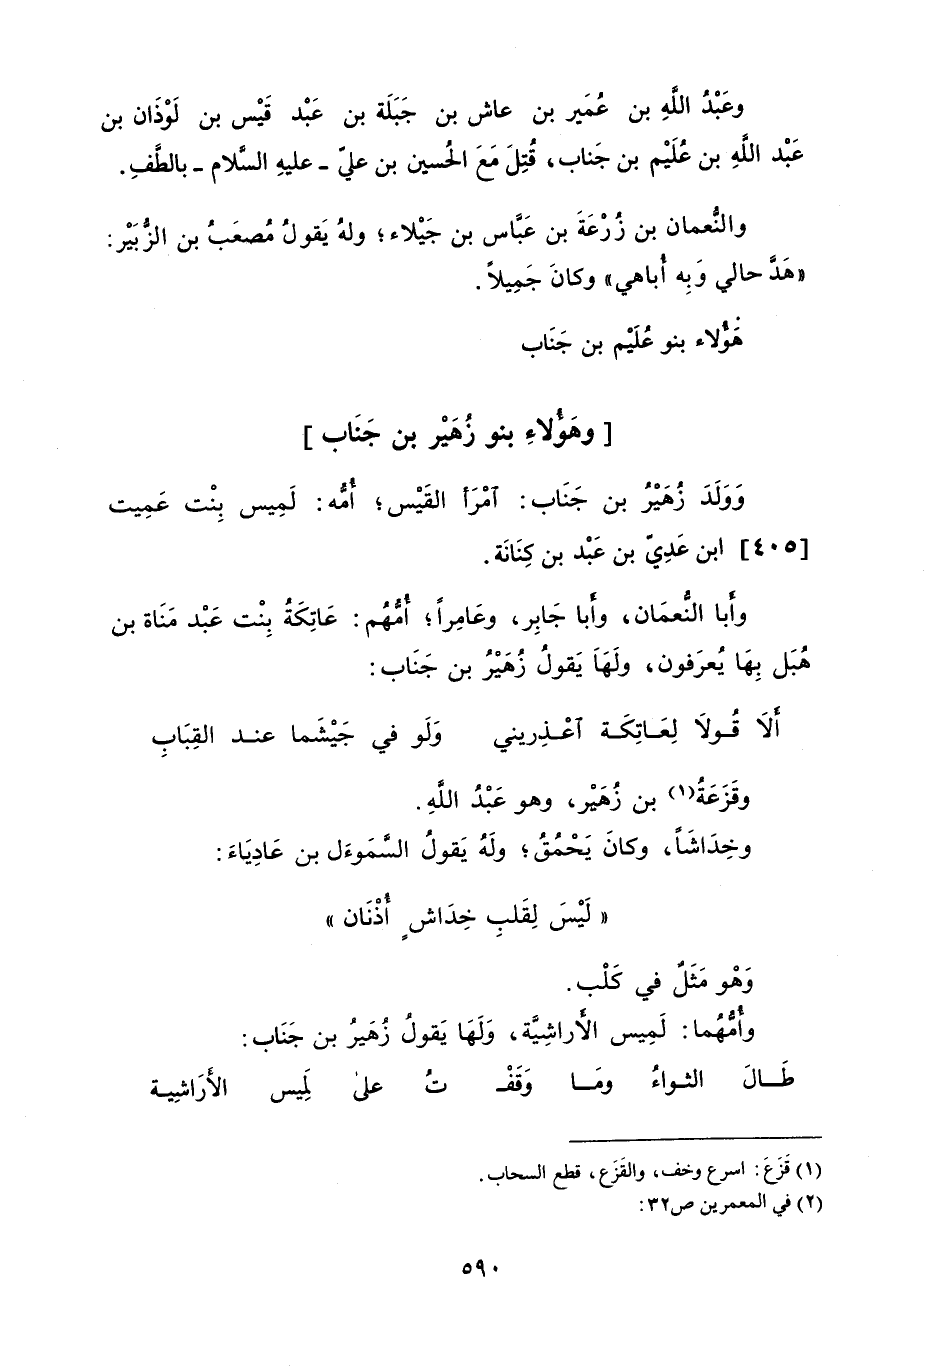 وعَبْدُ اللَّهِ بن عُمَير بن عاش بن جَبَلَة بن عَبْد قَيْس بن لَوْذَان بن
عَبْد اللَّه بن عُلَيْم بن جَناب، قُتِلَ مَعَ الحُسين بن عليّ ـ عليهِ السَّلام ـ بالطَّفِ.
والنُّعمان بن زُرْعَةَ بن عَبَّاس بن جَيْلاء؛ ولهُ يَقولُ مُصعَبُ بن الزُّبَيْر:
«هَدَّ حالي وَبِه أُباهي» وكانَ جَمِيلاً.
هَؤُلاء بنو عُلَيْم بن جَنَاب
[ وهَؤُلاءِ بنو زُهَيْر بن جَنَاب ]
وَوَلَدَ زُهَيْرُ بن جَنَاب: آمْرَأ القَيْس؛ أُمُّه: لَمِيس بِنْت عَمِيت
[٤٠٥] ابن عَدِيّ بن عَبْد بن كِنَانَة.
وأَبا النُّعمَان، وأَبا جَابِر، وعَامِراً؛ أُمُّهُم: عَاتِكَةُ بِنْت عَبْد مَنَاة بن
هُبَل بِهَا يُعرَفون، ولَهَا يَقولُ زُهَيْرُ بن جَنَاب:
أَلَا قُـولَا لِعَـاتِكَـة آعْـذِريني وَلَو في جَيْشَما عنـد القِبَابِ
وقَزَعَةُ(١) بن زُهَيْر، وهو عَبْدُ اللَّهِ.
وخِدَاشَاً، وكانَ يَحْمُقُ؛ ولَهُ يَقولُ السَّمَوءَل بن عَادِيَاءَ:
« لَيْسَ لِقَلبِ خِدَاشٍ أُذْنَان »
وَهْو مَثَلٌ في كَلْب.
وأُمُّهُما: لَمِيس الأَراشِيَّة، وَلَهَا يَقولُ زُهَيرُ بن جَناب:
طَـــالَ الثـواءُ ومَـــا وَقَفْـ ـتُ علىٰ لَمِيس الأَرَاشِيـة
(١) قَزَعَ: اسرع وخف، والقَزَع، قطع السحاب.
(٢) في المعمرين ص٣٢:
٥٩٠